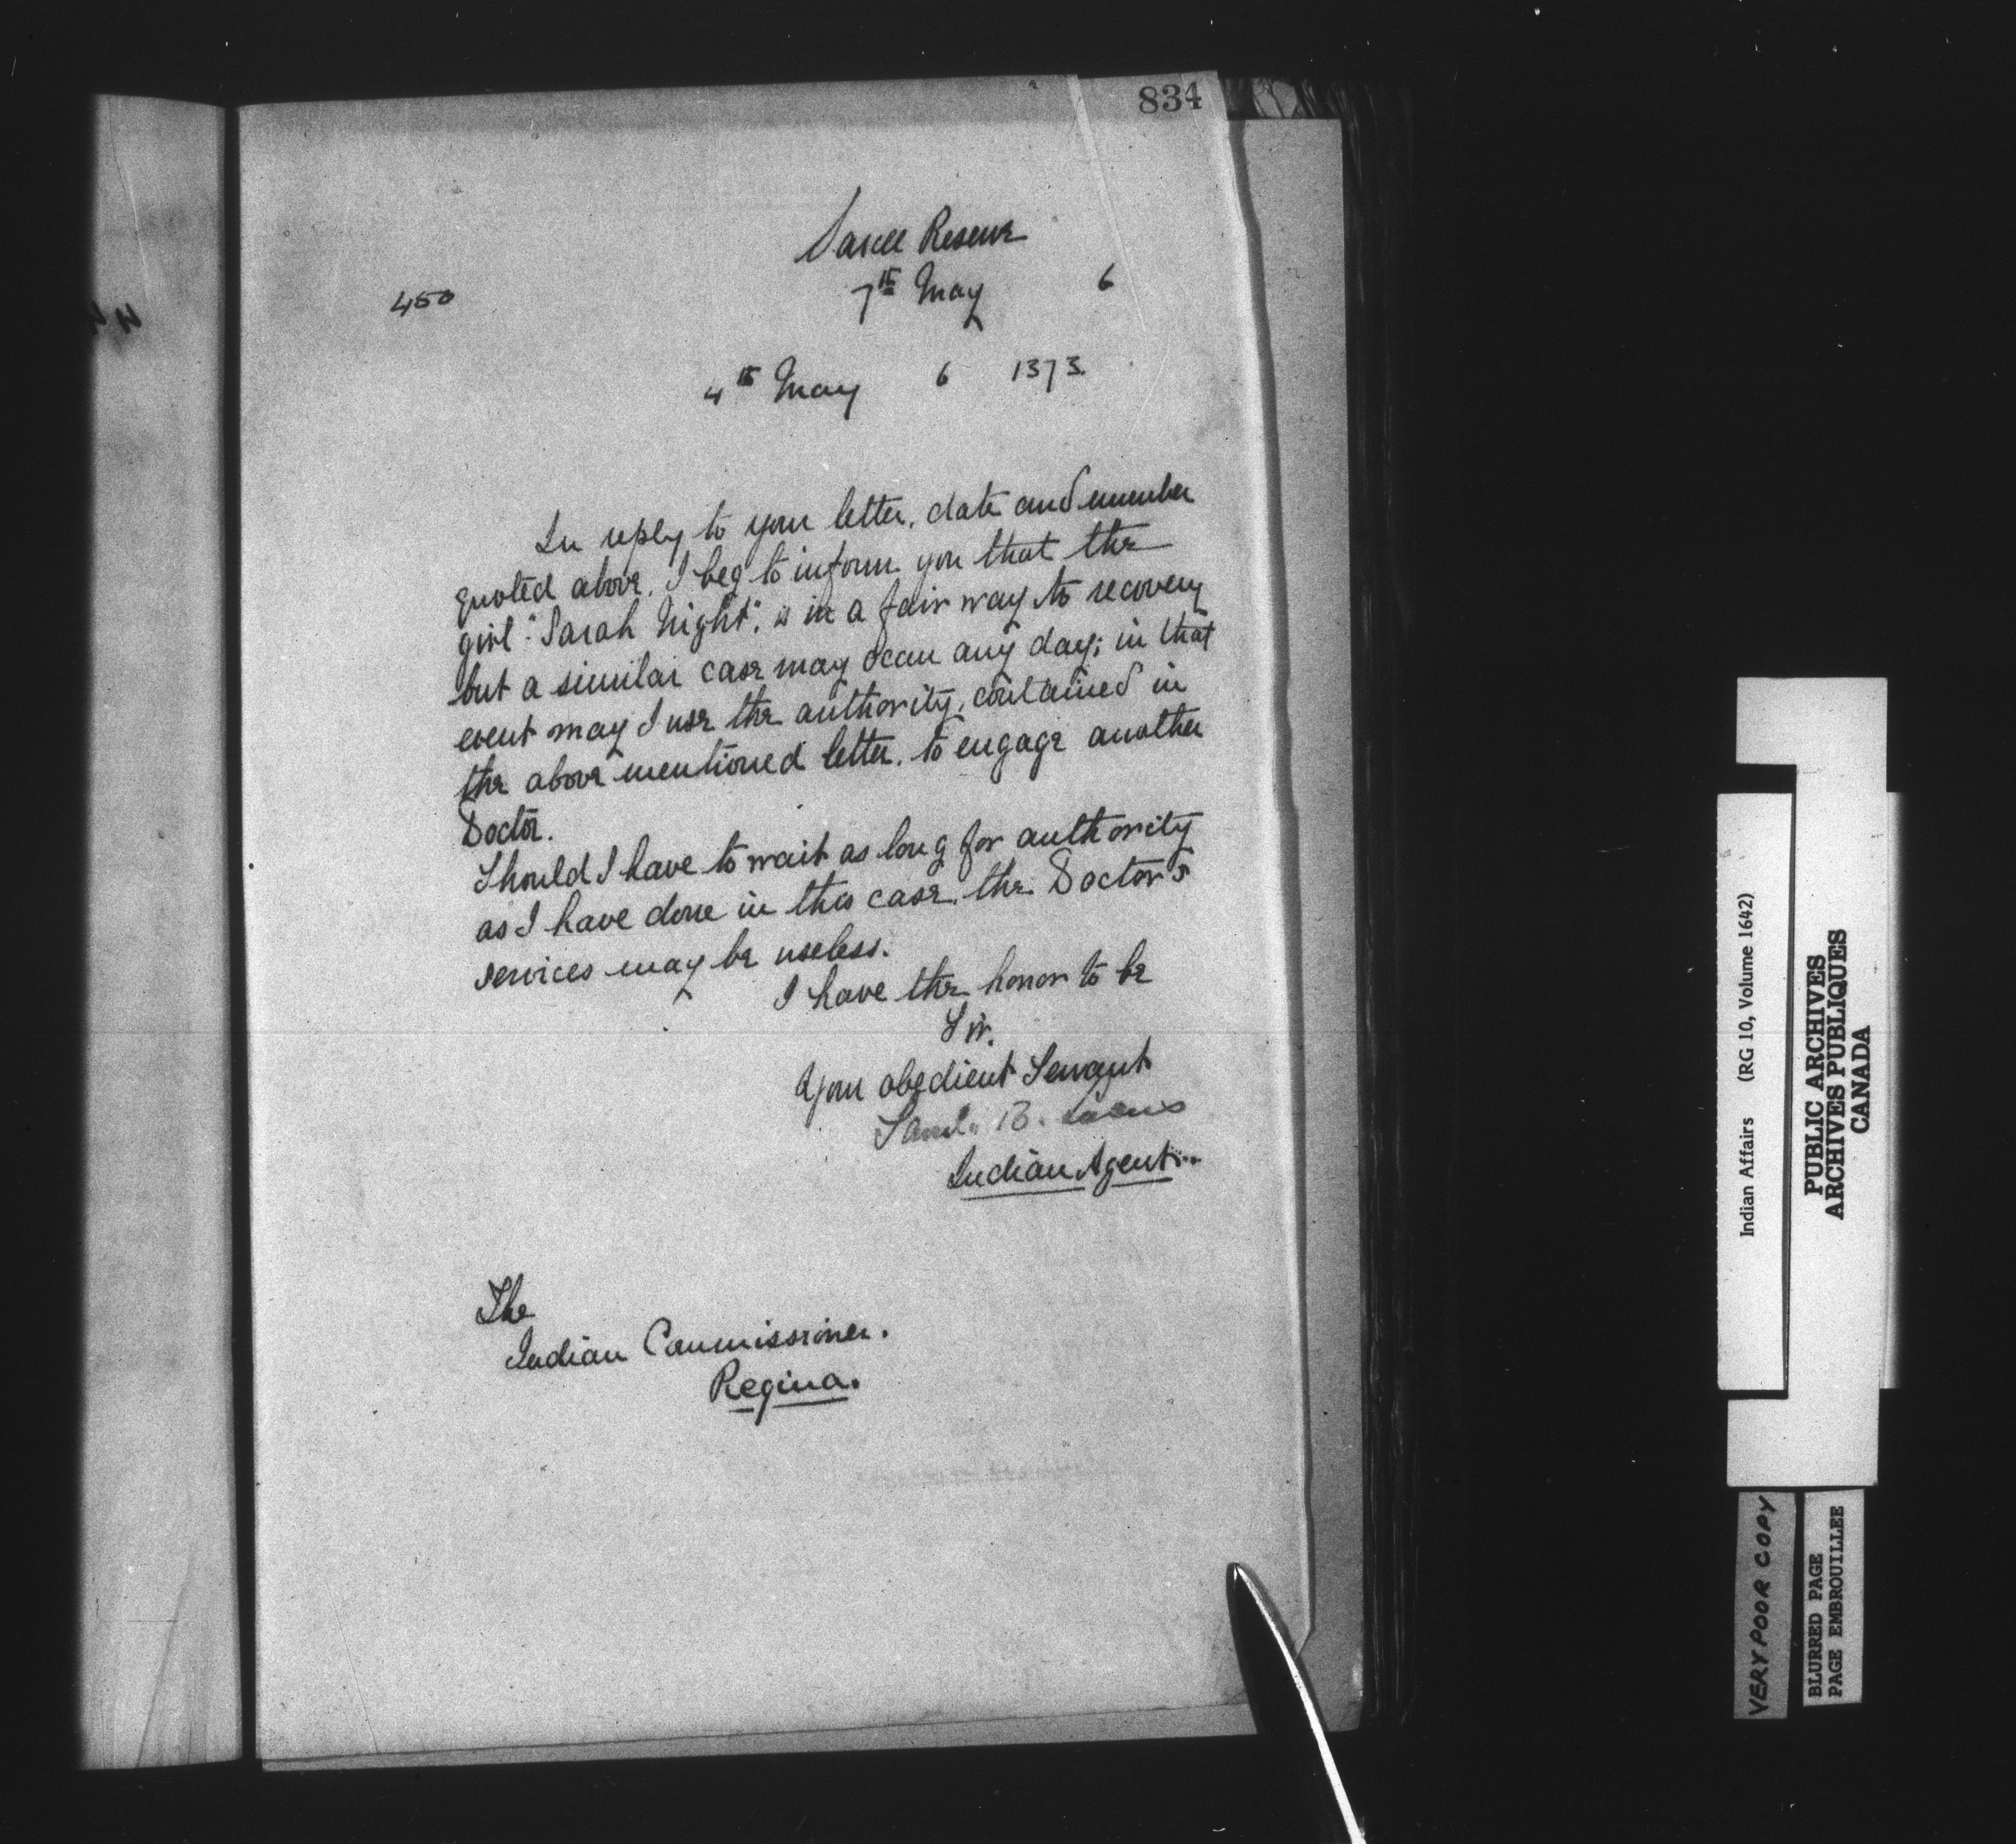 834
Sarcee Reserve
450 7th May 6
4th May 6 1373.
In reply to your letter, date and number
quoted above, I beg to inform you that the
girl "Sarah Night", is in a fair way to recovery
but a similar case may occur any day; in that
event may I use the authority, contained in
the above mentioned letter, to engage another
Doctor.
Should I have to wait as long for authority
as I have done in this case, the Doctor's
services may be useless.
I have the honor to be
Sir,
Your obedient Servant
Saml. B. Lucas
Indian Agent.
The
Indian Commissioner.
Regina.
Indian Affairs (RG 10, Volume 1642)
PUBLIC ARCHIVES
ARCHIVES PUBLIQUES
CANADA
VERY POOR COPY
BLURRED PAGE
PAGE EMBROUILLEE